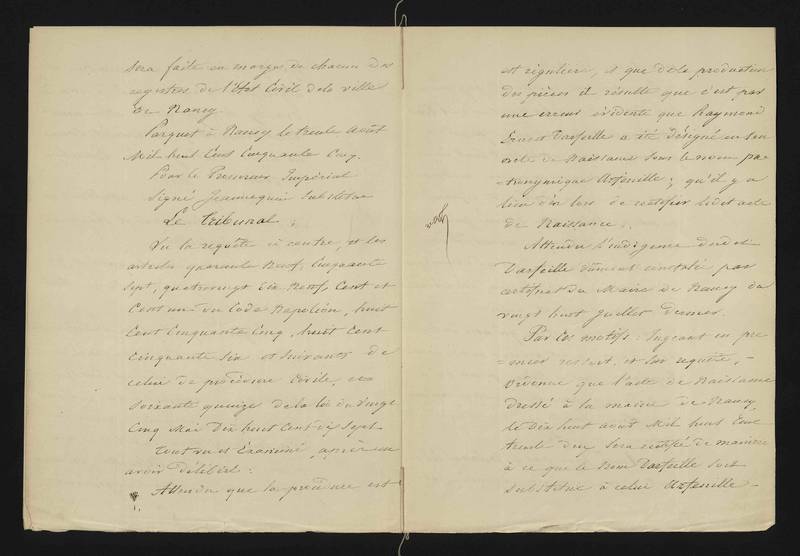 sera faite en marge de chacun des
registres de l'Etat Civil de la ville
de Nancy.
Parquet à Nancy le trente Août
Mil huit Cent Cinquante Cinq.
Pour le Procureur Impérial
Signé Jeannequin Substitut
Le tribunal,
Vu la requête ci contre, et les
articles quarante Neuf, Cinquante
sept, quatrevingt dix Neuf, Cent et
Cent un du Code Napoléon, huit
Cent Cinquante Cinq, huit Cent
Cinquante Six et suivants de
celui de procédure Civile, et
soixante quinze de la loi du Vingt
Cinq Mai Dix huit Cent dix Sept
tout vu et Examiné, après en
avoir délibéré:
Attendu que la procédure est
est régulière, et que de la production
des pièces il résulte que c'est par
une erreur évidente que Raymond
Ernest Darfeuille a été désigné en son
acte de Naissance sous le nom pa=
=tronymique Arfeuille; qu'il y a
lieu dès lors de rectifier ledit acte
de Naissance.
Attendu l'indigence dudit
Darfeuille dûment constatée par
certificat du Maire de Nancy du
vingt huit Juillet dernier.
Par Ces motifs: Jugeant en pre
=mier ressort, et sur requête, -
Ordonne que l'acte de Naissance
dressé à la mairie de Nancy,
le Dix huit août Mil huit Cent
trente deux sera rectifié de manière
à ce que le Nom Darfeuille soit
substitué à celui Arfeuille -